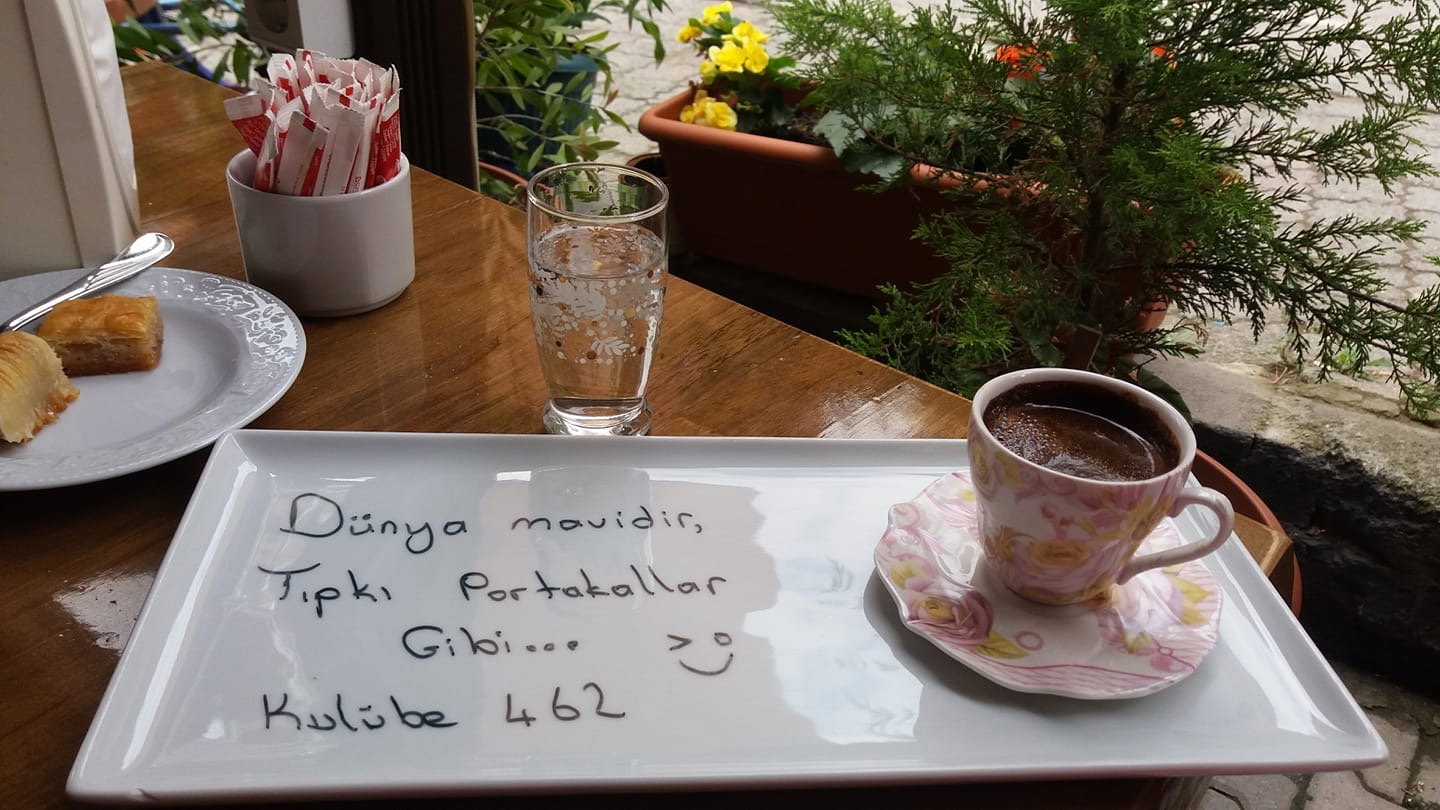 Dünya mavidir,
Tıpkı Portakallar
Gibi...
Kulübe 462